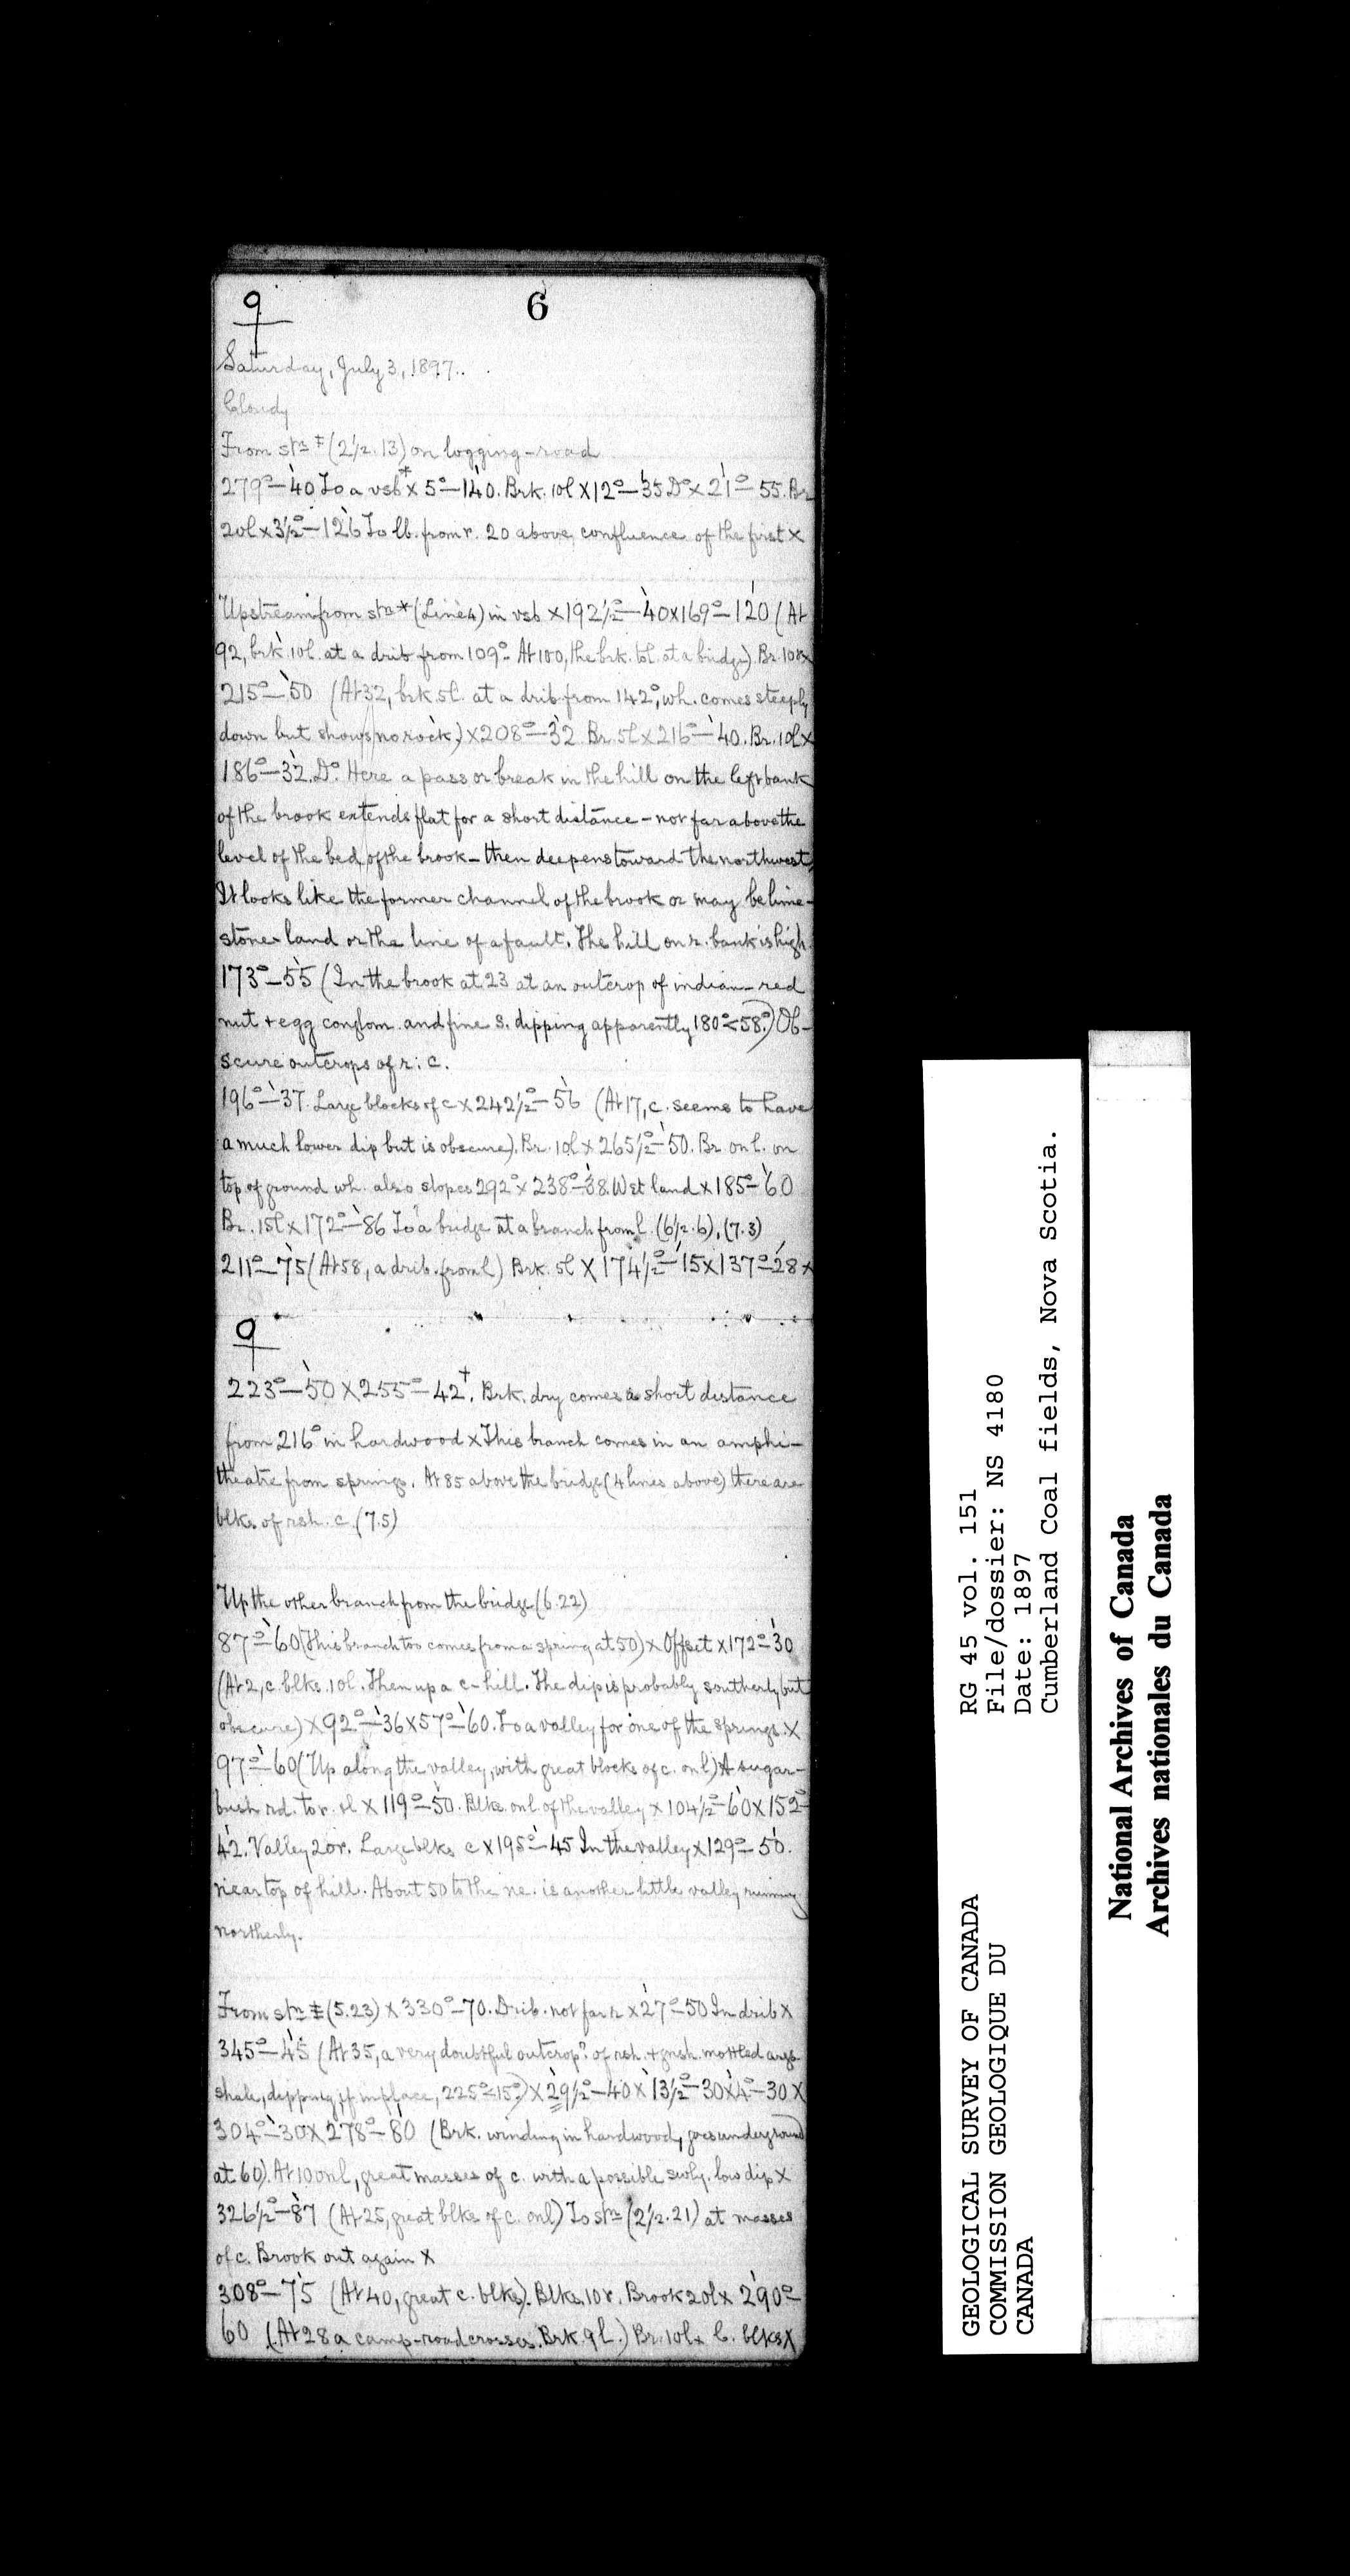 9
6
Saturday, July 3, 1897.
Cloudy
From stn ‡ (2½.13) on logging-road
279°–40 To a vsb* x 5°–140. Brk. 10l x 12°–35 D° x 21°–55. Br
20l x 3½°–126 To lb. from r. 20 above confluence of the first x
Upstream from stn * (Line 4) in vsb x 192½°–40 x 169°–120 (At
92, brk. 10l. at a drib from 109°. At 100, the brk. tol. at a bridge). Br. 10r x
215°–50 (At 32, brk 5l. at a drib from 142°, wh. comes steeply
down but shows no rock.) x 208°–32 Br. 5l x 216°–40. Br. 10l x
186°–32. D°. Here a pass or break in the hill on the left bank
of the brook extends flat for a short distance – not far above the
level of the bed of the brook – then deepens toward the northwest.
It looks like the former channel of the brook or may be lime-
stone land or the line of a fault. The hill on r. bank is high.
173°–55 (In the brook at 23 at an outcrop of indian-red
nut + egg conglom. and fine s. dipping apparently 180°<58°.) Ob-
scure outcrops of r. c.
196°–37. Large blocks of c x 242½°–56 (At 17, c. seems to have
a much lower dip but is obscure). Br. 10l x 265½°–50. Br. on l. on
top of ground wh. also slopes 292° x 238°–38 Wet land x 185°–60
Br. 15l x 172°–86 To a bridge at a branch from l. (6½.6), (7.3)
211°–75 (At 58, a drib. from l) Brk. 5l x 174½°–15 x 137°–28 x
9
223°–50 x 255°–42†. Brk. dry comes a short distance
from 216° in hardwood x This branch comes in an amphi-
theatre from springs. At 85 above the bridge (4 lines above) there are
blks of rsh. c. (7.5)
Up the other branch from the bridge (6.22)
87°–60 (This branch too comes from a spring at 50) x Offset x 172°–30
(At 2, c. blks. 10l. Then up a c-hill. The dip is probably southerly but
obscure) x 92°–36 x 57°–60. To a valley for one of the springs. x
97°–60 (Up along the valley, with great blocks of c. on l) A sugar-
bush rd. to r. x 119°–50. Blks. on l. of the valley x 104½°–60 x 152°–
42. Valley 20r. Large blks c x 195°–45 In the valley x 129°–50.
near top of hill. About 50 to the ne. is another little valley running
northerly.
From stn ‡ (5.23) x 330°–70. Drib. not far r x 27°–50 In drib x
345°–45 (At 35, a very doubtful outcrop? of rsh. + gnsh. mottled arg.
shale, dipping, if in place, 225°<15°.) x 29½°–40 x 13½°–30 x 4°–30 x
304°–30 x 278°–80 (Brk. winding in hardwood, goes underground
at 60). At 10 on l, great masses of c. with a possible swly. low dip x
326½°–87 (At 25, great blks of c. on l) To stn (2½.21) at masses
of c. Brook out again x
308°–75 (At 40, great c. blks). Blks. 10r. Brook 20l x 290°–
60 (At 28 a camp-road crosses. Brk. 9l.) Br. 10l x C. blks x
GEOLOGICAL SURVEY OF CANADA
COMMISSION GEOLOGIQUE DU
CANADA
RG 45 vol. 151
File/dossier: NS 4180
Date: 1897
Cumberland Coal fields, Nova Scotia.
National Archives of Canada
Archives nationales du Canada